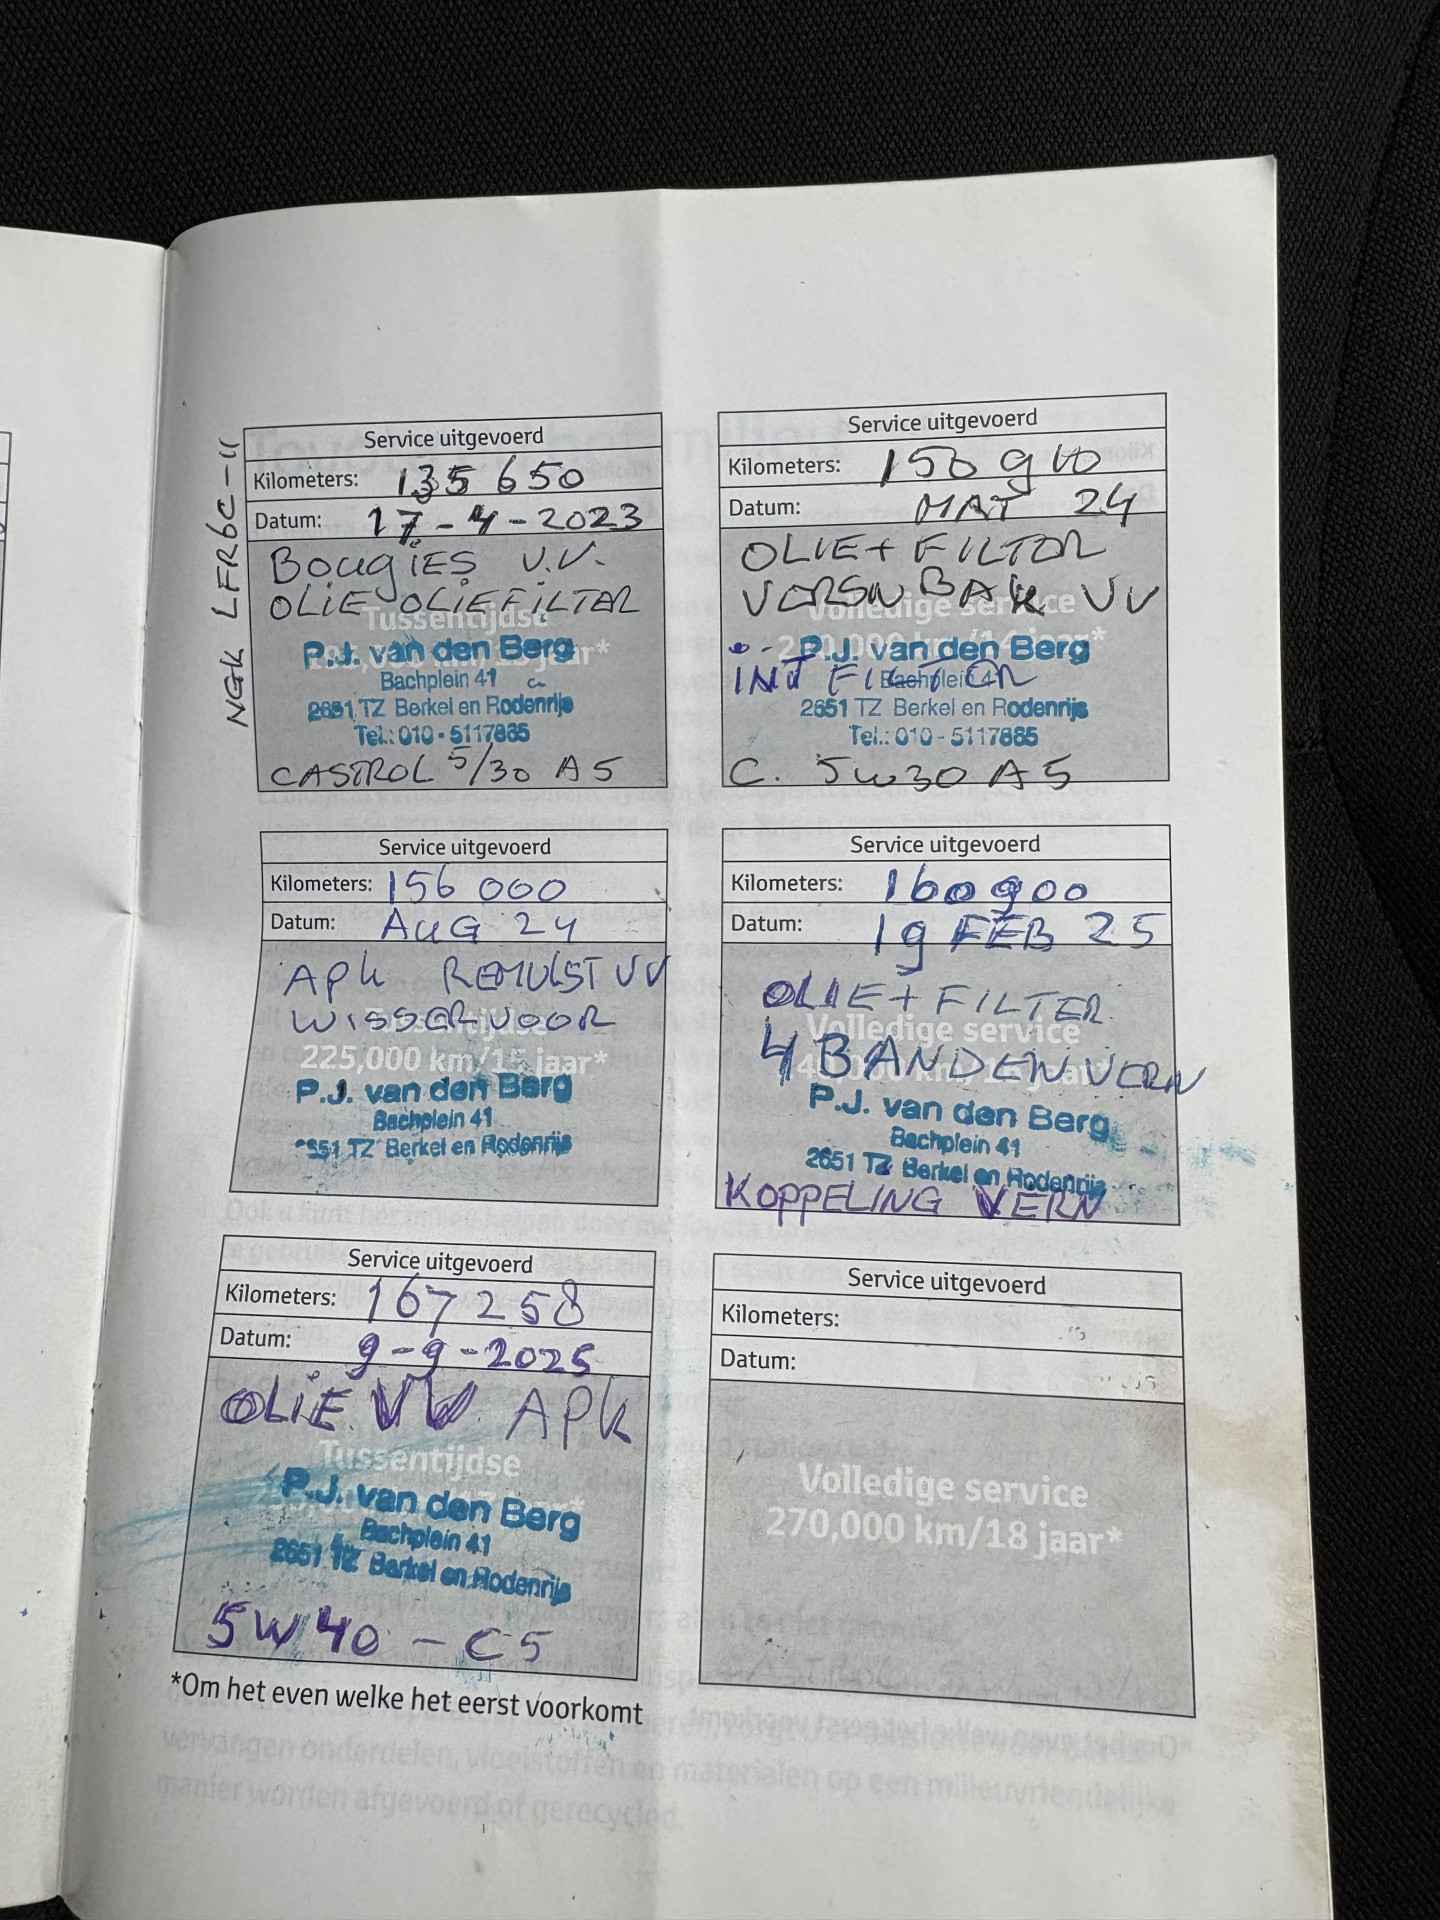 NGK LFR6C-11
Service uitgevoerd
Kilometers: 135 650
Datum: 17-4-2023
BOUGIES V.V.
OLIE OLIEFILTER
Tussentijdse
P.J. van den Berg
Bachplein 41
2651 TZ Berkel en Rodenrijs
Tel.: 010-5117885
CASTROL 5/30 A5
Service uitgevoerd
Kilometers:
Datum: 24
OLIE + FILTER
BAK VV
Volledige service
P.J. van den Berg
INT FILTER
Bachplein 41
2651 TZ Berkel en Rodenrijs
Tel.: 010-5117885
C. 5W30 A5
Service uitgevoerd
Kilometers: 156 000
Datum: AUG 24
APK REMVLST VV
WISSER VOOR
Tussentijdse
225,000 km/15 jaar*
P.J. van den Berg
Bachplein 41
2651 TZ Berkel en Rodenrijs
Service uitgevoerd
Kilometers: 160900
Datum: 19 FEB 25
OLIE + FILTER
Volledige service
4 BANDEN VERN
P.J. van den Berg
Bachplein 41
2651 TZ Berkel en Rodenrijs
KOPPELING VERN
Service uitgevoerd
Kilometers: 167258
Datum: 9-9-2025
OLIE VV APK
Tussentijdse
P.J. van den Berg
Bachplein 41
2651 TZ Berkel en Rodenrijs
5W40 - C5
Service uitgevoerd
Kilometers:
Datum:
Volledige service
270,000 km/18 jaar*
*Om het even welke het eerst voorkomt